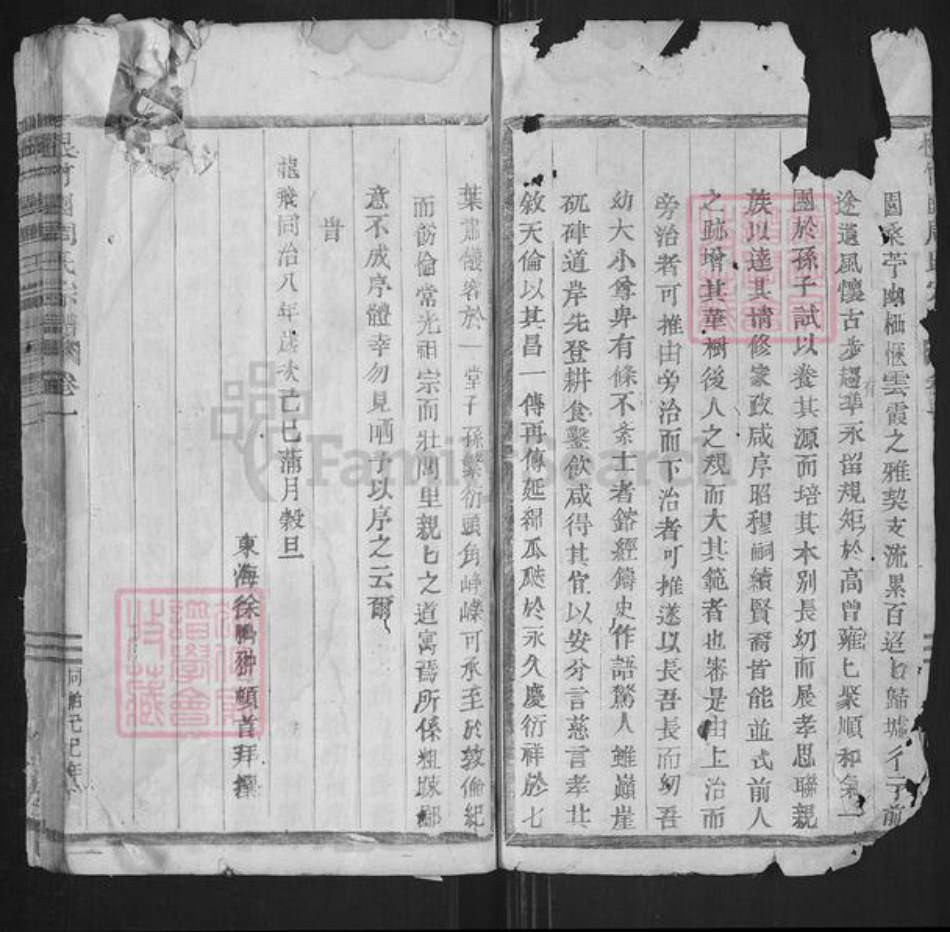 園桑苧幽栖愜雲霞之雅契支流累百迢匕歸墟彳亍前
途遺風懷古步趨準永留規矩於高曾雍匕聚順和氣一
團於孫子試以養其源而培其本別長幼而展孝思聯親
族以達其情修家政咸序昭穆嗣續賢裔皆能並式前人
之跡增其華樹後人之規而大其範者也審是由上治而
旁治者可推由旁治而下治者可推遂以長吾長而幼吾
幼大小尊卑有條不紊士者鎔經鑄史作語驚人雖巔崖
矹硉道岸先登耕食鑿飲咸得其宜以安分言慈言孝共
敘天倫以其昌一傳再傳延綿瓜瓞於永久慶衍祥於七
葉肅儀容於一堂子孫繁衍頭角崢嶸可承至於敦倫紀
而飭倫常光祖宗而壯閭里親匕之道寓焉所係粗踈鄙
意不成序體幸勿見哂予以序之云爾
旹
龍飛同治八年歲次己巳蒲月穀旦
東海徐翀頓首拜撰
根竹園周氏宗譜 卷一
同治己巳年
FamilySearch